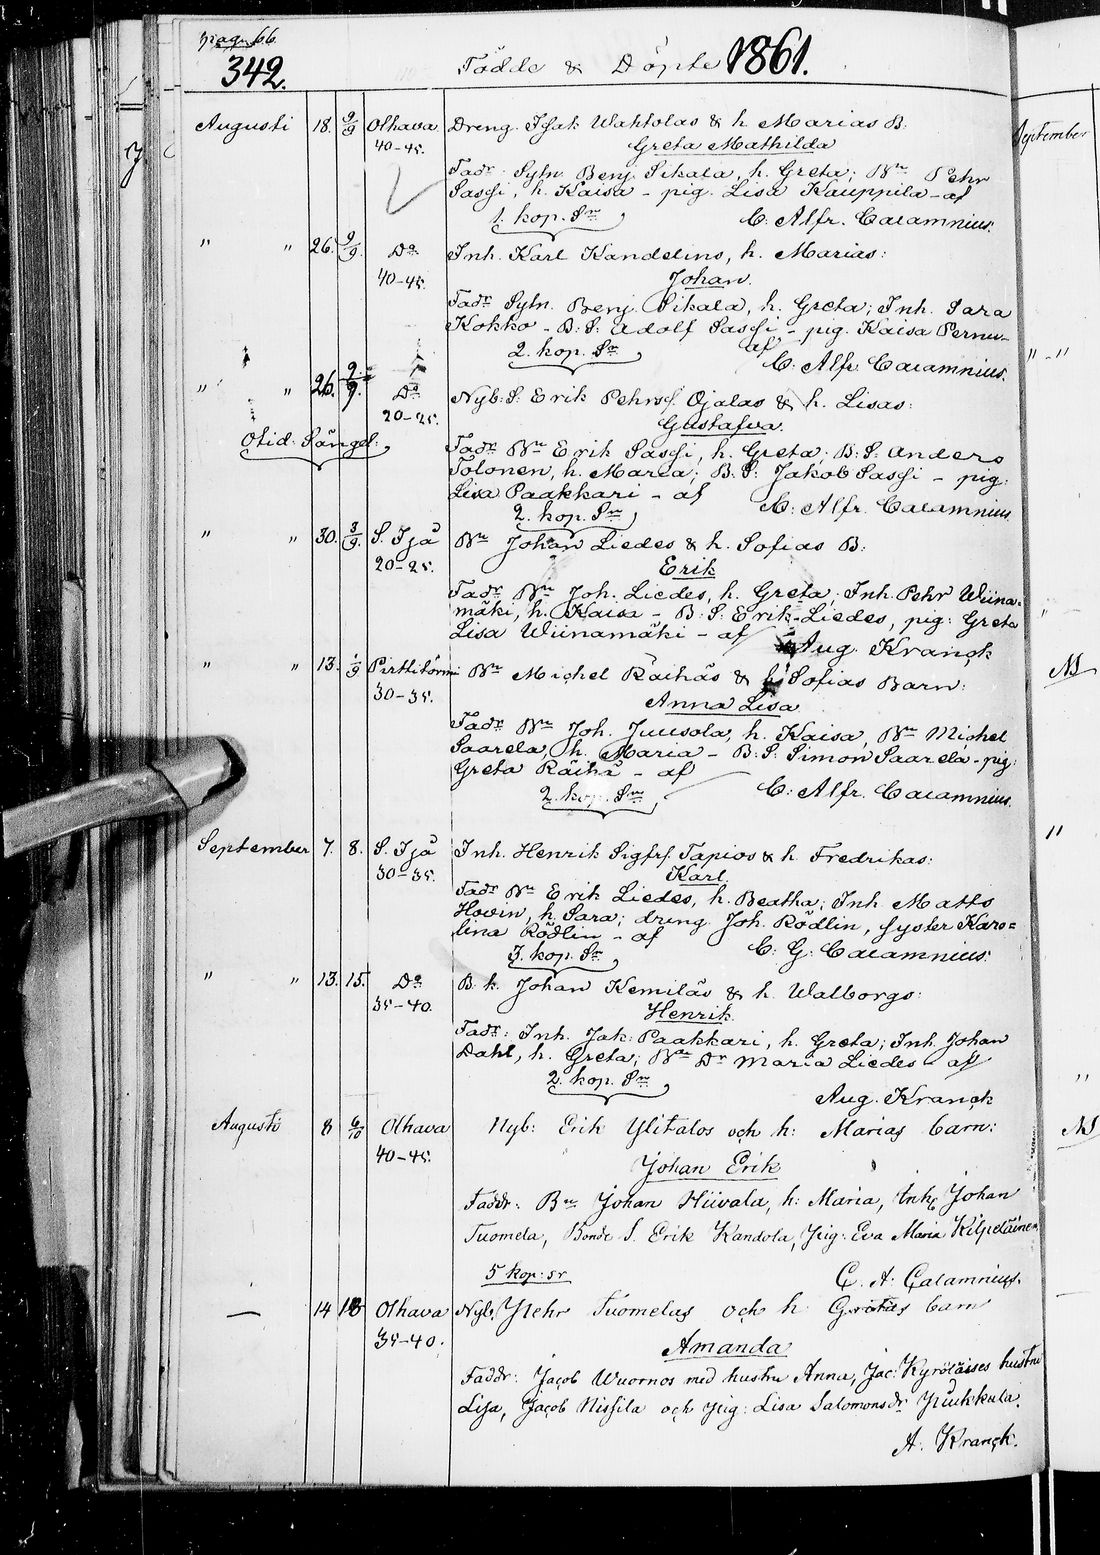 pag. 66.
342.
Födde & Döpte 1861.
Augusti 18. 9/9 Olhava Dreng. Isak Wahtolas & h. Marias B.
40-45. Greta Mathilda
Fadr Sytn. Benj. Sikala, h. Greta; Bn Pehr
Sassi, h. Kaisa - pig. Lisa Kauppila - af
1. kop. Sr C. Alfr. Calamnius.
" " 26. 9/9. Do Inh. Karl Kandelins, h. Marias:
40-45. Johan.
Fadr Sytn. Benj. Sikala, h. Greta; Inh. Sara
Kokko - B. S. Adolf Sassi - pig. Kaisa Pernu-
2. kop. Sr af C. Alfr. Calamnius.
" " 26. 9/9. Do Nyb. S. Erik Pehrsf. Ojalas & h. Lisas:
20-25. Gustafva.
Otid: Sängel: Fadr Bn Erik Sassi, h. Greta; B. S. Anders
Tolonen, h. Maria; B. S. Jakob Sassi - pig:
Lisa Paakkari - af C. Alfr. Calamnius.
2. kop. Sr
" " 30. 3/9. S. Ijå Bn Johan Liedes & h. Sofias B:
20-25. Erik
Fadr Bn Joh. Liedes, h. Greta; Inh. Pehr Wiina=
mäki, h. Kaisa - B. S. Erik Liedes, pig: Greta
Lisa Wiinamäki - af Aug. Kranck
" " 13. 1/9 Pirttitörmi Bn Michel Räihäs & h. Sofias Barn:
30-35. Anna Lisa
Fadr Bn Joh. Juusola, h. Kaisa, Bn Michel
Saarela, h. Maria - B. S. Simon Saarela - pig:
Greta Räihä - af C. Alfr. Calamnius.
2. kop. Sr
September 7. 8. S. Ijå Inh. Henrik Sigfrf. Tapios & h. Fredrikas:
30-35. Karl.
Fadr Bn Erik Liedes, h. Beatha; Inh. Matts
Hovin, h. Sara; dreng Joh. Rödlin, syster Karo=
lina Rödlin - af C. G. Calamnius.
3. kop. Sr
" " 13. 15. Do B. k. Johan Kemiläs & h. Walborgs:
35-40. Henrik.
Fadr: Inh. Jak: Paakkari, h. Greta; Inh. Johan
Dahl, h. Greta; Bn Dr Maria Liedes - af
2. kop. Sr Aug. Kranck
Augusti 8 6/10 Olhava Nyb: Erik Ylitalos och h: Marias barn:
40-45. Johan Erik
Faddr: Bn Johan Hiivala, h: Maria, Johan
Tuomela, Bonde S. Erik Kandola, Pig: Eva Maria Kilpeläinen.
5 kop: sr C. A. Calamnius.
— 14 Olhava Nyb. Pehr Tuomelas och h Gretas barn
35-40. Amanda
Faddr: Jacob Wuornos med hustru Anna, Jac: Kyröläises hustru
Lisa, Jacob Nissila och pig: Lisa Salomonsdr Puukkula.
A. Kranck.
September
" - "
"
NB
"
"
NB